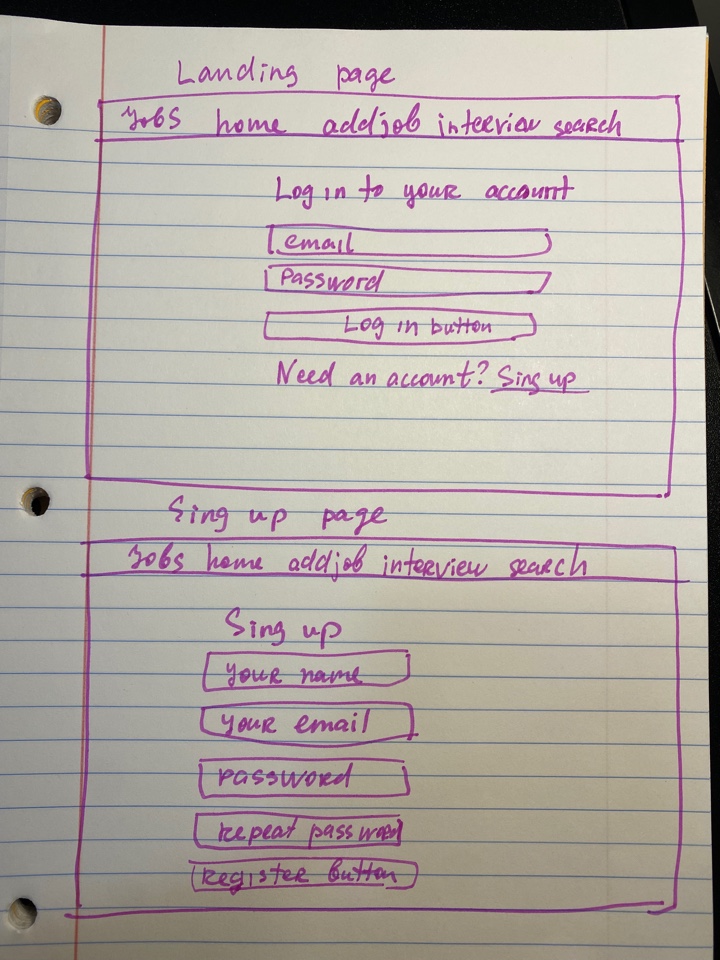 Landing page
Jobs home addjob interview search
Log in to your account
email
Password
Log in button
Need an account? Sing up
Sing up page
Jobs home addjob interview search
Sing up
your name
your email
password
repeat password
register button